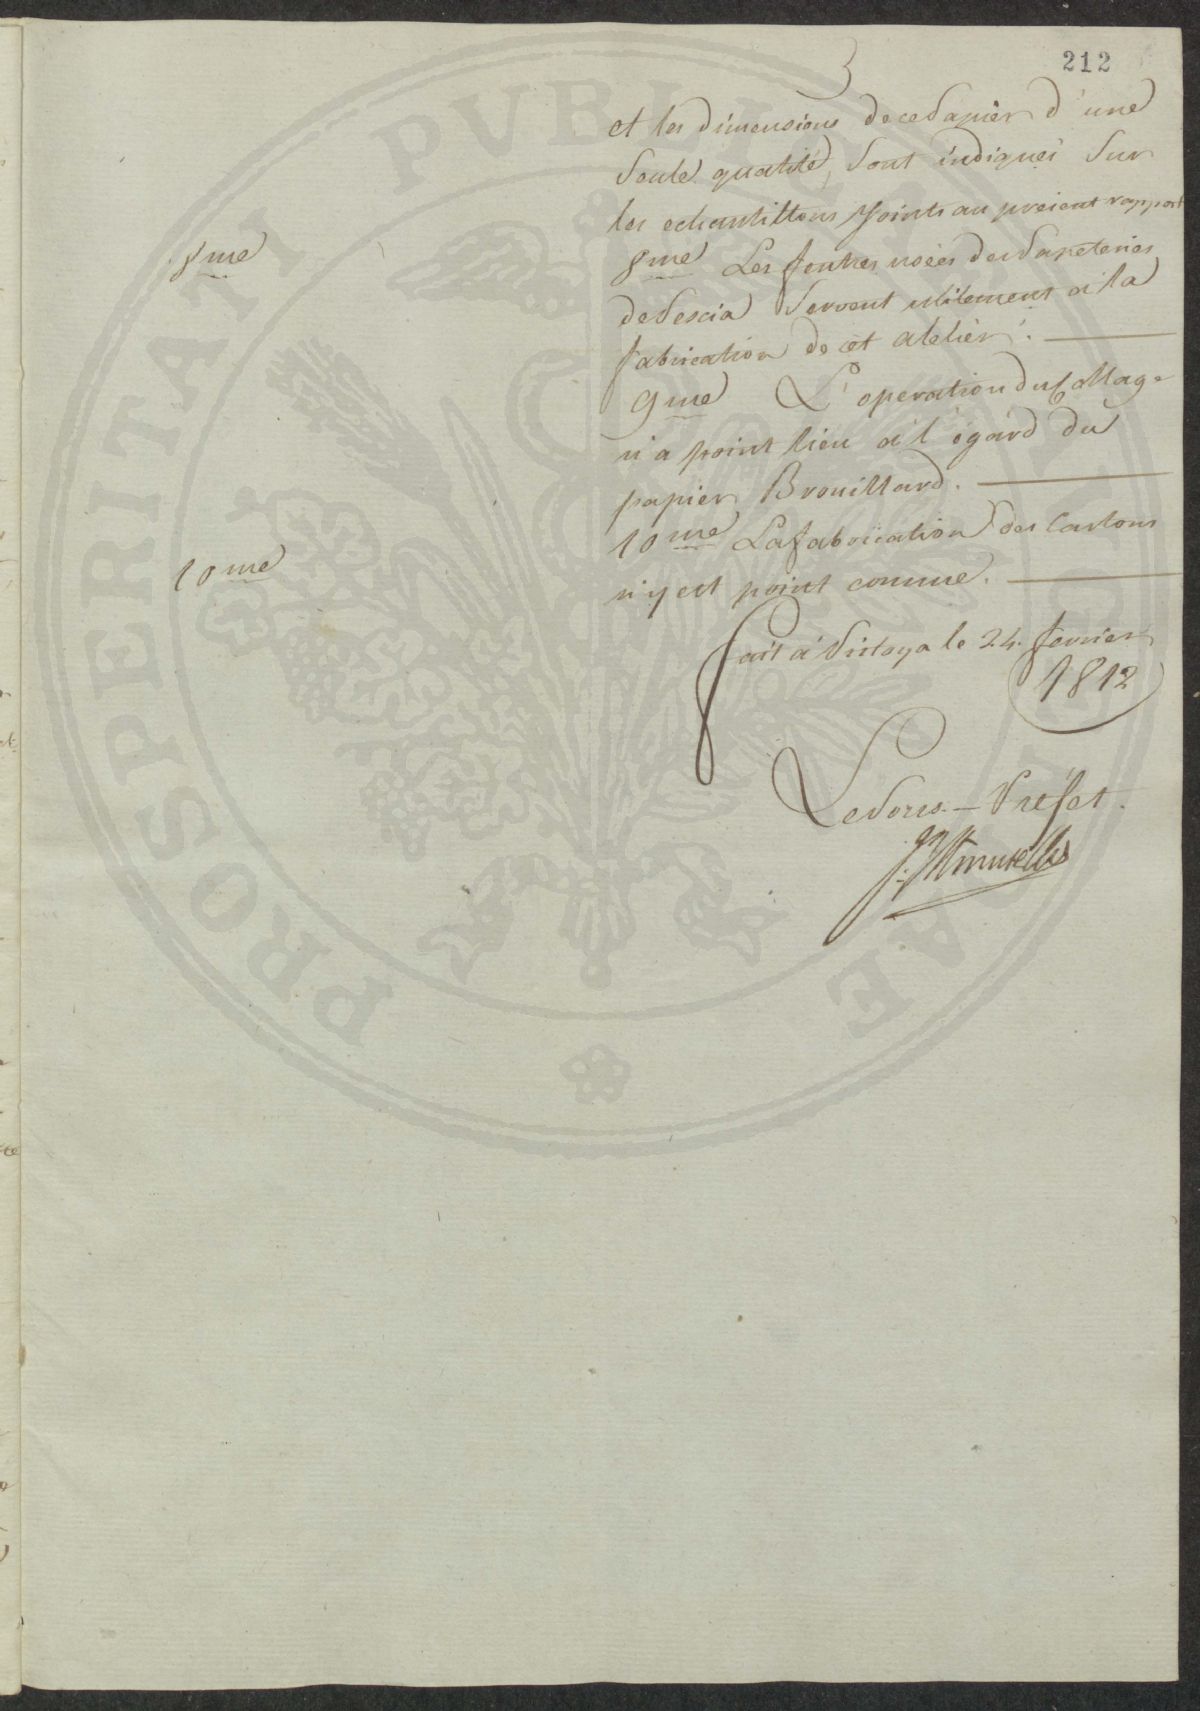 212
3
et les dimensions de ce Papier d'une
Seule qualité, Sont indiqués Sur
les echantillons joints au présent rapport
8me
8me Les feutres usées des Papeteries
de Pescia Servent utilement à la
fabrication de cet atelier.
9me L'operation du Collage
n'a point lieu à l'égard du
papier Brouillard.
10me
10me La fabrication des Cartons
n'y est point connue.
fait à Pistoya le 24. fevrier
1812
Le Sous-Préfet.
PROSPERITATI PVBLICAE